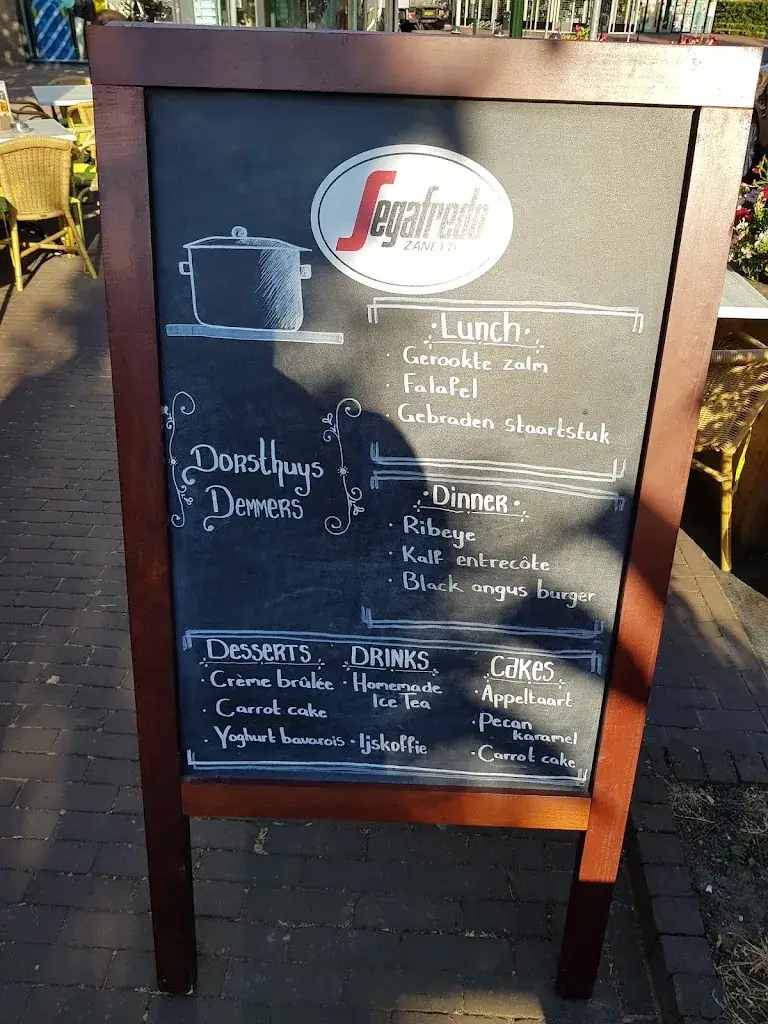 Segafredo
ZANETTI
Lunch
Gerookte zalm
Falafel
Gebraden staartstuk
Dorsthuys
Demmers
Dinner
Ribeye
Kalf entrecôte
Black angus burger
Desserts
Crème brûlée
Carrot cake
Yoghurt bavarois
DRINKS
Homemade
Ice Tea
Ijskoffie
Cakes
Appeltaart
Pecan
karamel
Carrot cake